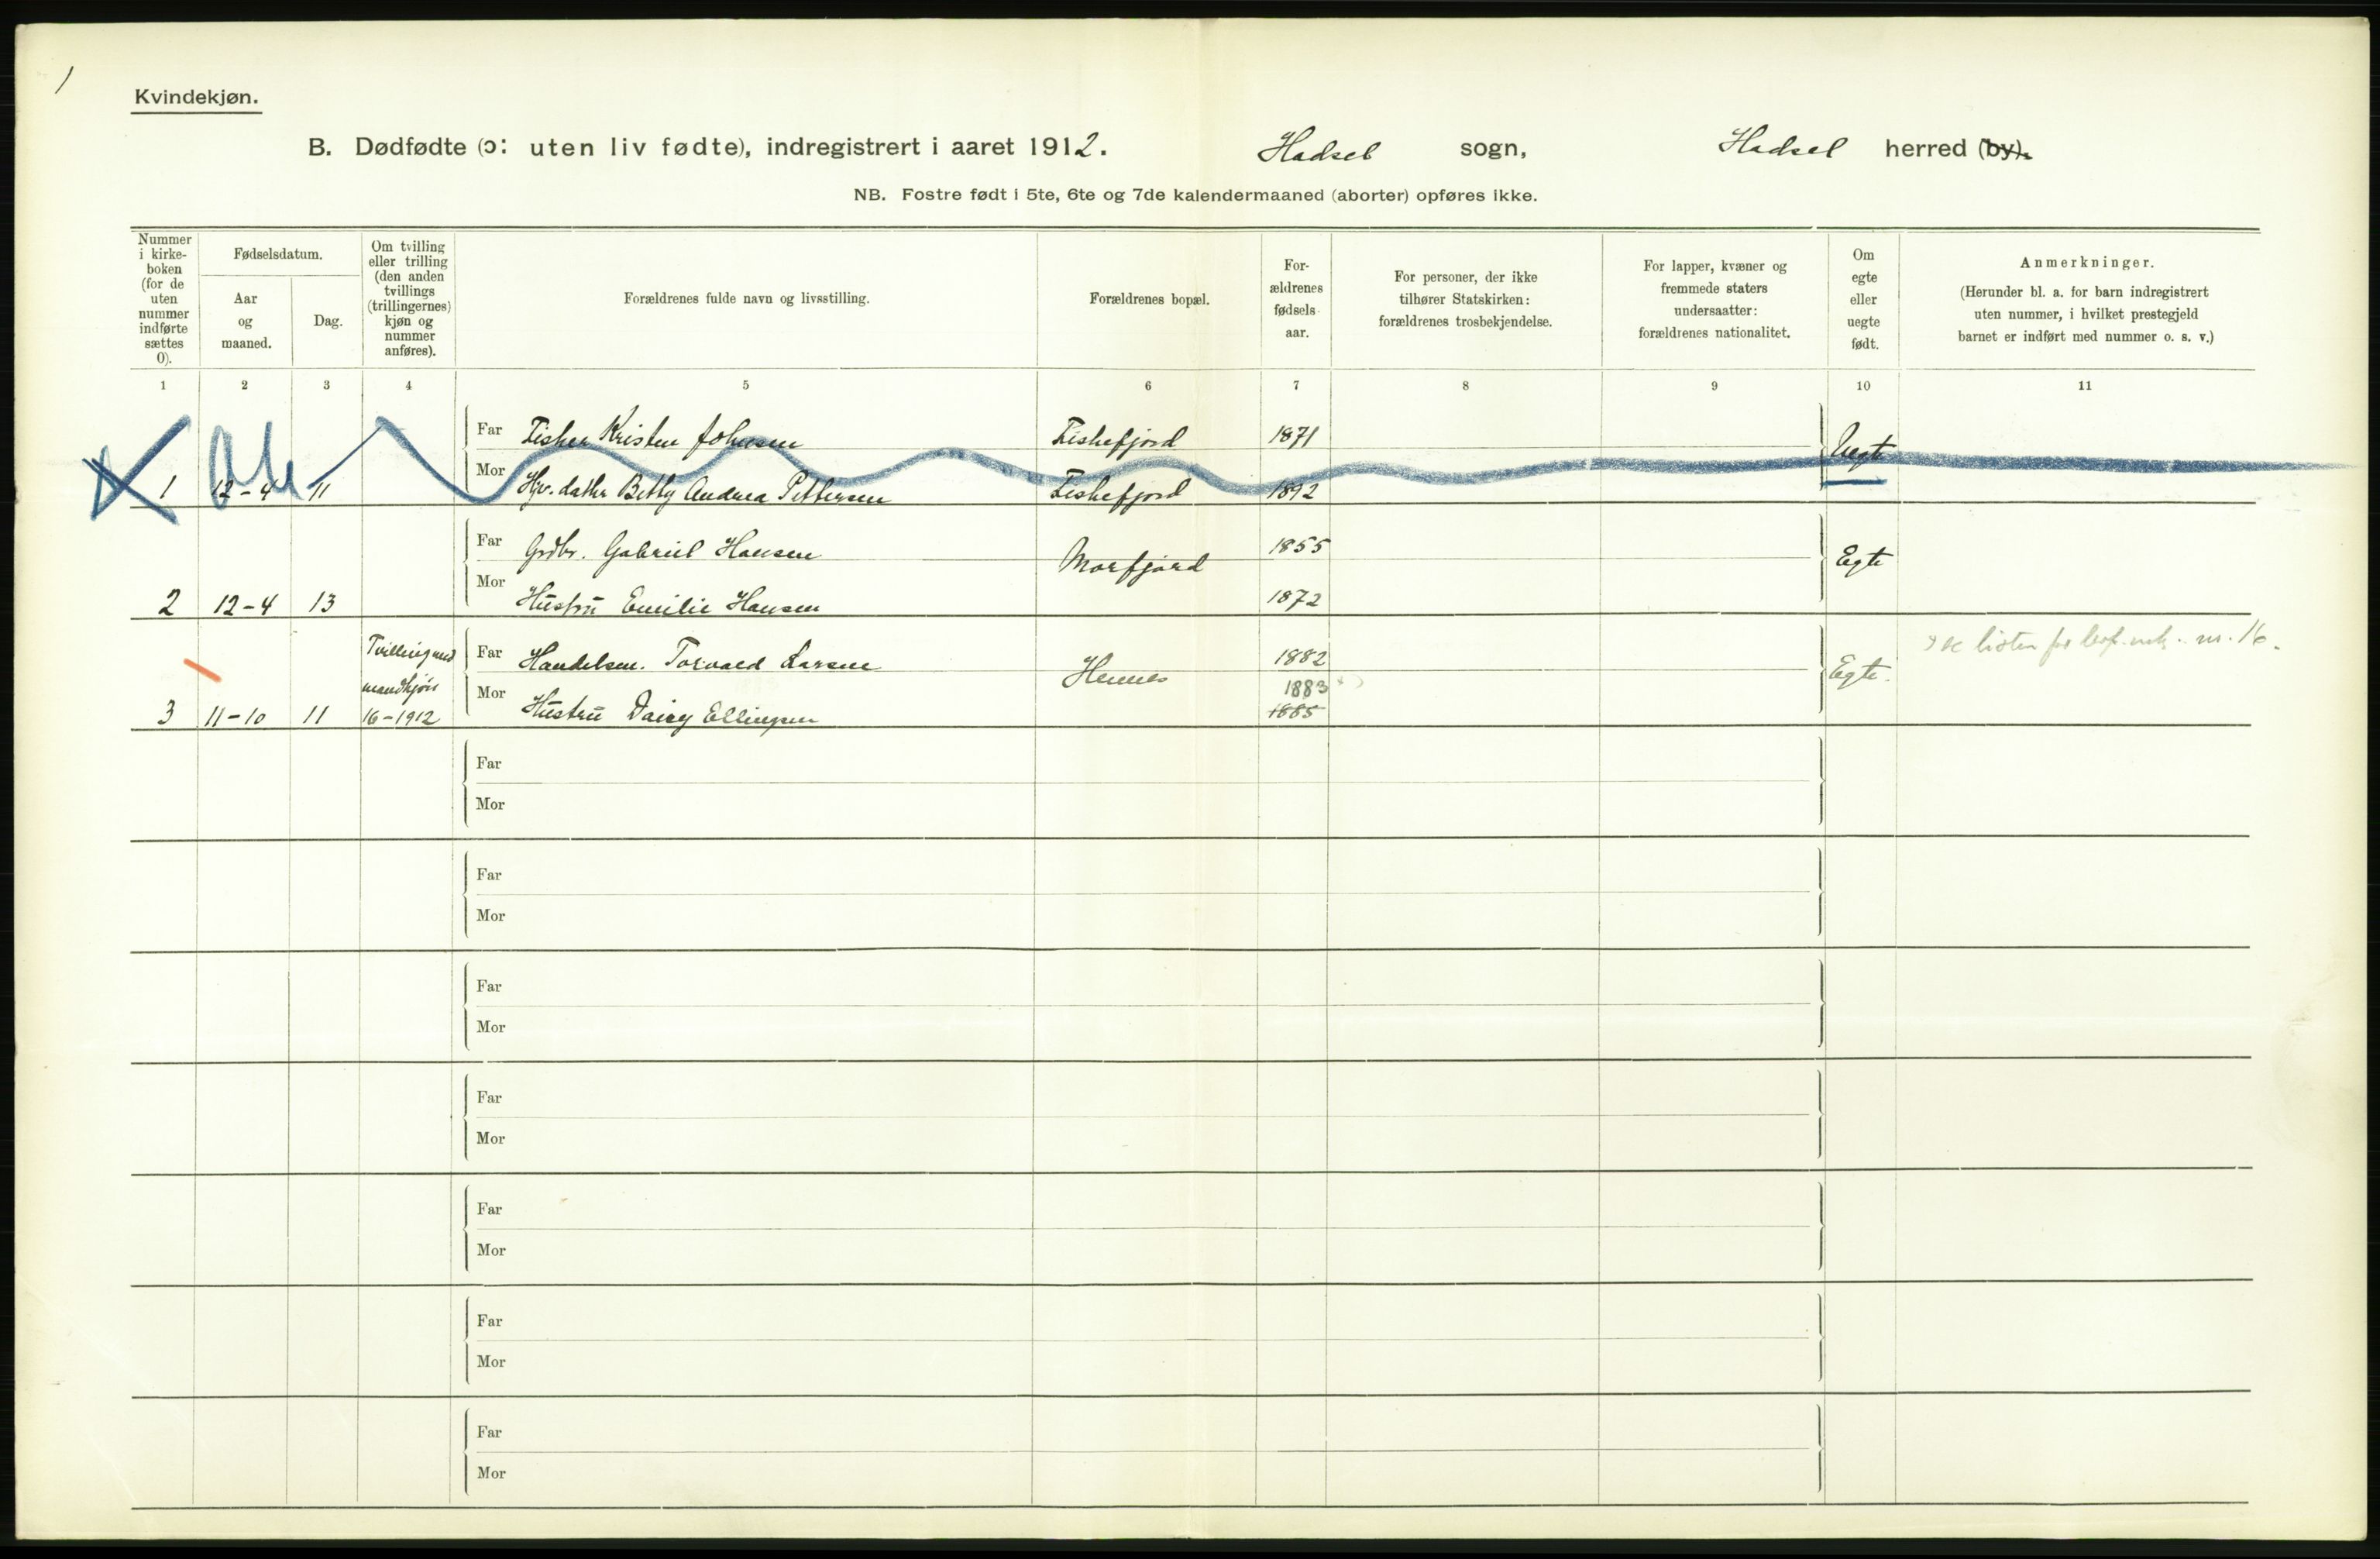 Kvindekjøn.
B. Dødfødte (ɔ: uten liv fødte), indregistrert i aaret 1912. Hadsel sogn, Hadsel herred (by).
NB. Fostre født i 5te, 6te og 7de kalendermaaned (aborter) opføres ikke.
Nummer i kirke-boken (for de uten nummer indførte sættes 0).
Fødselsdatum.
Aar og maaned.
Dag.
Om tvilling eller trilling (den anden tvillings (trillingernes) kjøn og nummer anføres).
Forældrenes fulde navn og livsstilling.
Forældrenes bopæl.
For-ældrenes fødsels-aar.
For personer, der ikke tilhører Statskirken: forældrenes trosbekjendelse.
For lapper, kvæner og fremmede staters undersaatter: forældrenes nationalitet.
Om egte eller uegte født.
Anmerkninger.
(Herunder bl. a. for barn indregistrert uten nummer, i hvilket prestegjeld barnet er indført med nummer o. s. v.)
1 2 3 4 5 6 7 8 9 10 11
Far Fisker Kristen Johnsen Fiskefjord 1871 Uegte
1 12-4 11 Mor Hjv. datter Betty Andrea Pettersen Fiskefjord 1892
Far Grdbr. Gabriel Hansen Morfjord 1855 Egte
2 12-4 13 Mor Hustru Emilie Hansen 1872
Tvilling med Far Handelsm. Torvald Larsen Hennes 1882 Egte. listen for nr. 16.
mandkjøn 1883
3 11-10 11 16-1912 Mor Hustru Daisy Ellingsen 1885
Far
Mor
Far
Mor
Far
Mor
Far
Mor
Far
Mor
Far
Mor
Far
Mor